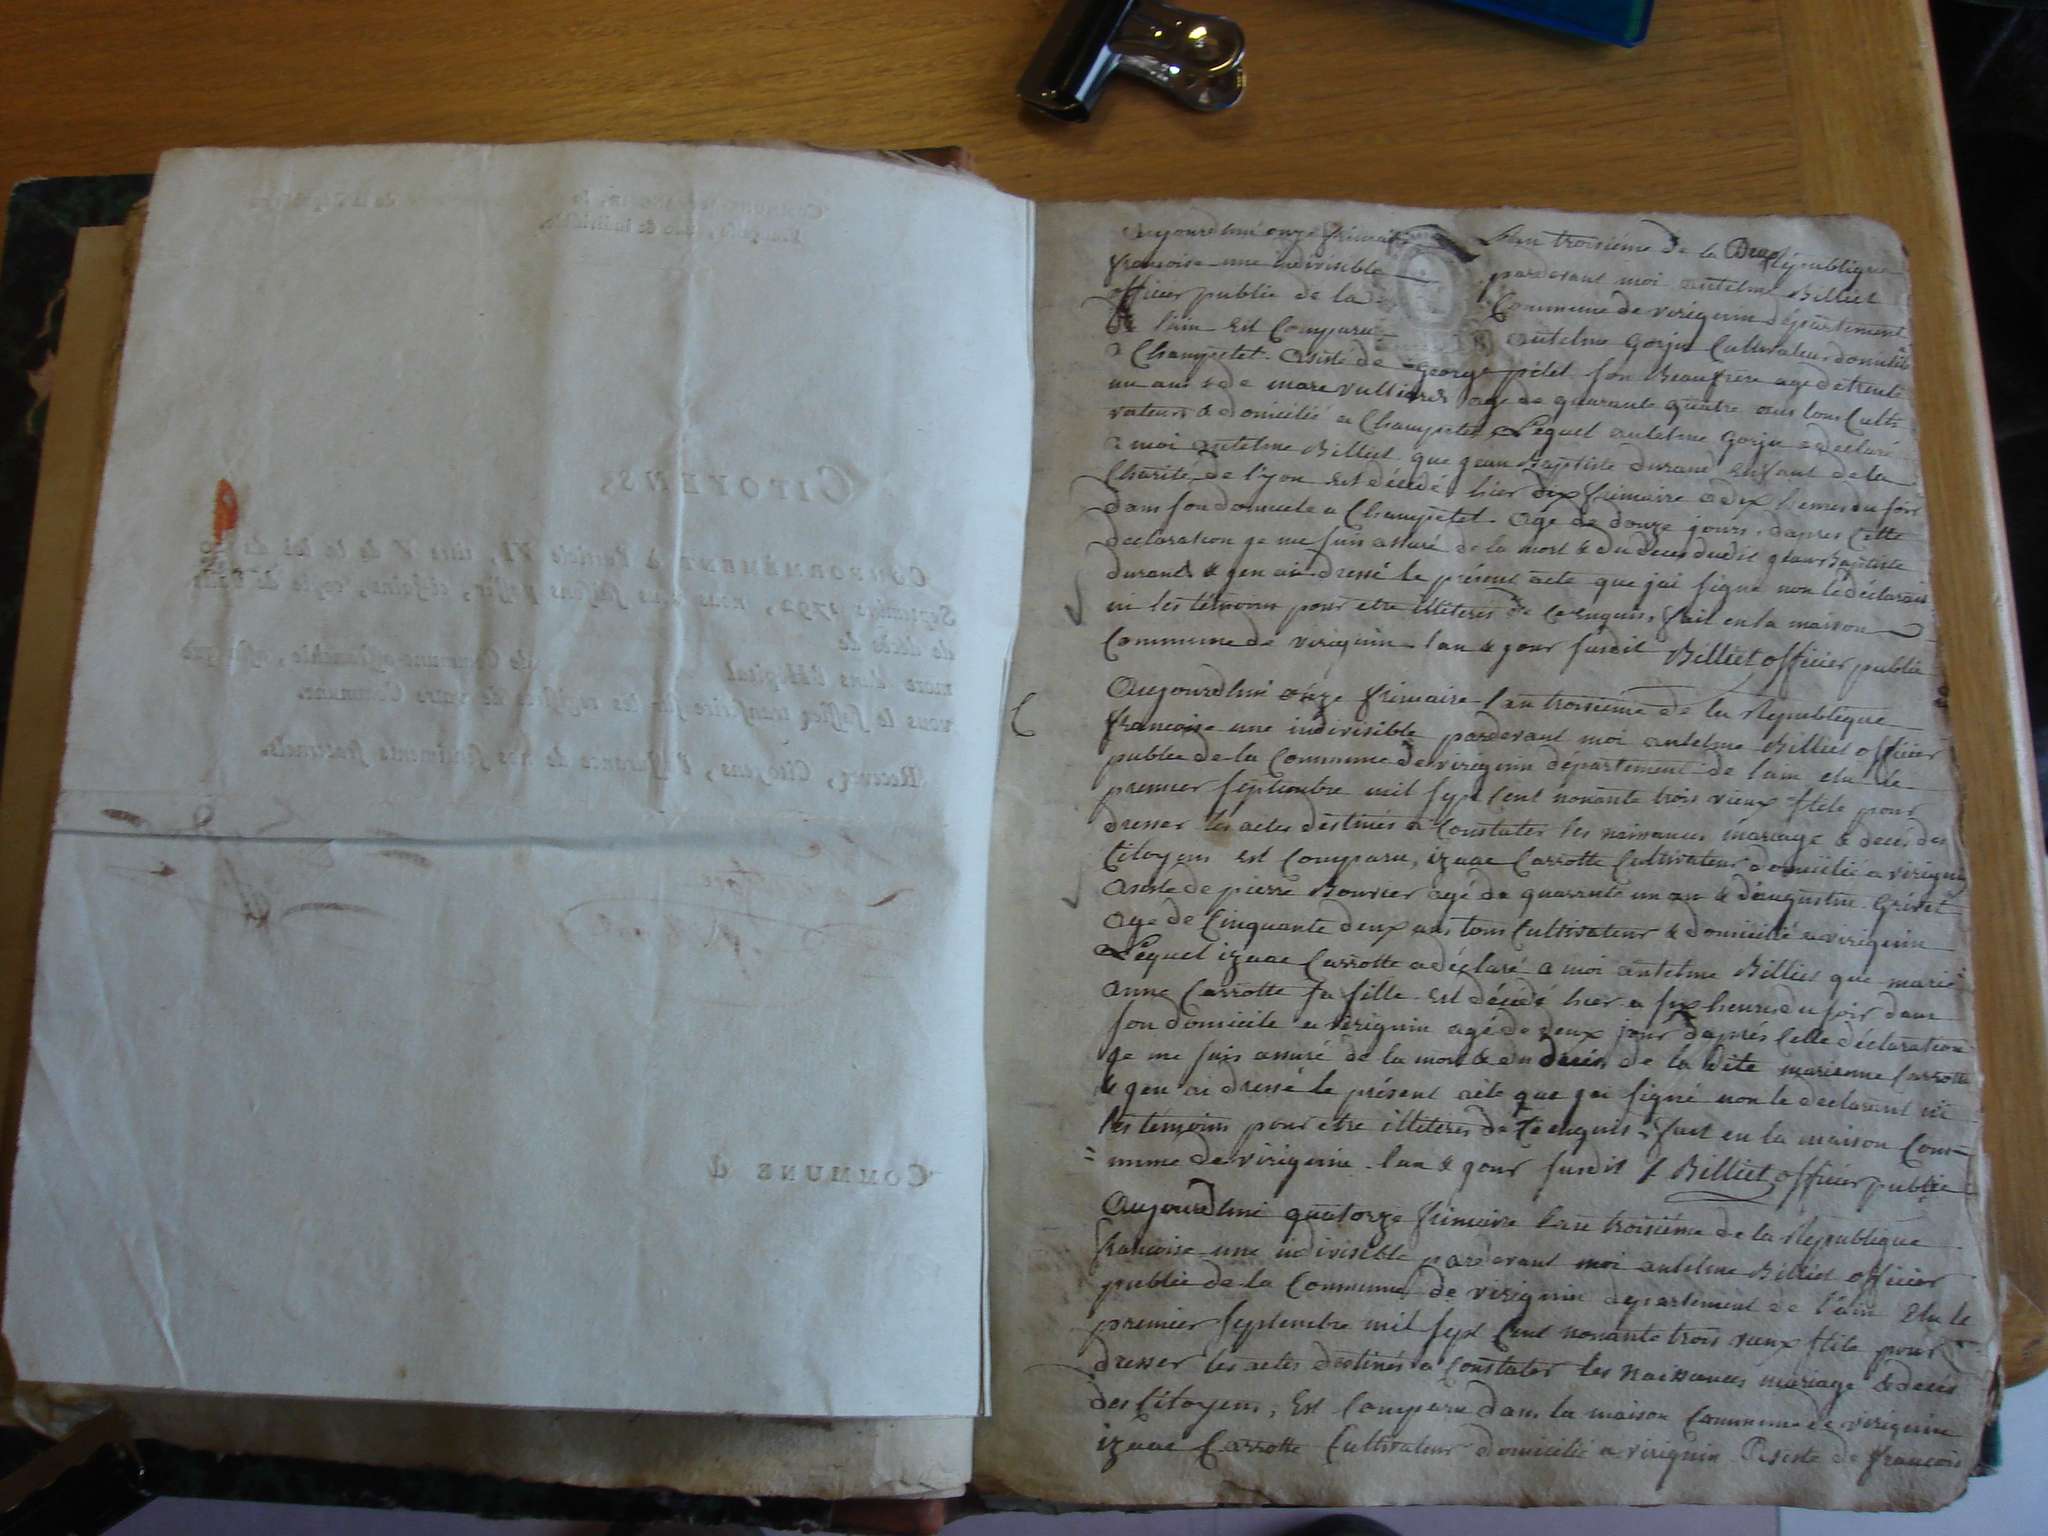 CITOYENS,
CONFORMÉMENT à l'article VI, titre V de la loi du 20
Septembre 1792, nous vous faisons passer, ci-joint, copie de l'acte
de décès de
mort dans l'Hôpital de Commune-affranchie, afin que
vous le fassiez transcrire sur les registres de votre Commune.
Recevez, Citoyens, l'assurance de nos sentiments fraternels.
COMMUNE d
Aujourdhui onze frimaire lan troisiéme de la République
francoise une indivisible pardevant moi antelme Billiet
officier public de la Commune de virignin département
de lain Est Comparu antelme Gorju Cultivateur domicilié
a Champetel assisté de George pétel son Beaufrère agé de trente
un ans & de marc vulliered agé de quarante quatre ans tous Culti
vateurs & domicilié a Champetel Lequel antelme Gorju a declaré
a moi antelme Billiet que jean Baptiste durand Enfant de la
Charité de lyon Est décédé hier dix frimaire a dix heures du soir
dans son domicile a Champetel agé de douze jours, dapres Cette
declaration je me suis assuré de la mort & du deces dudit jean Baptiste
durand & jen ai dressé le présent acte que jai signé non le déclarant
ni les témoins pour etre illiteres de Ce enquis, fait en la maison
Commune de virignin lan & jour susdit Billiet officier public
Aujourdhui onze frimaire lan troisiéme de la Republique
francoise une indivisible pardevant moi antelme Billiet officier
public de la Commune de virignin département de lain elu le
premier septembre mil sept Cent nonante trois vieux stile pour
dresser les actes destinés a Constater les naissances mariage & decés des
Citoyens Est Comparu, izaac Carrotte Cultivateur domicilié a virignin
assisté de pierre Bouvier agé de quarante un an & daugustin Grivet
age de Cinquante deux ans tous Cultivateur & domicilié a virignin
Lequel izaac Carrotte a déclaré a moi antelme Billiet que marie
anne Carrotte sa fille Est décédé hier a six heures du soir dans
son domicile a virignin agé de deux jour daprés Cette déclaration
je me suis assuré de la mort & du decés de la dite marianne Carrotte
& jen ai dressé le présent acte que jai signé non le declarant ni
les témoins pour etre illiteres de Ce enquis, fait en la maison Com=
=mune de virignin lan & jour susdit Billiet officier public
Aujourdhui quatorze frimaire lan troisiéme de la République
francoise une indivisible pardevant moi antelme Billiet officier
public de la Commune de virignin departement de lain Elu le
premier septembre mil sept Cent nonante trois vieux stile pour
dresser les actes destinés a Constater les Naissances mariage & decés
des Citoyens, Est Comparu dans la maison Commune de virignin
izaac Carrotte Cultivateur domicilié a virignin assisté de francois